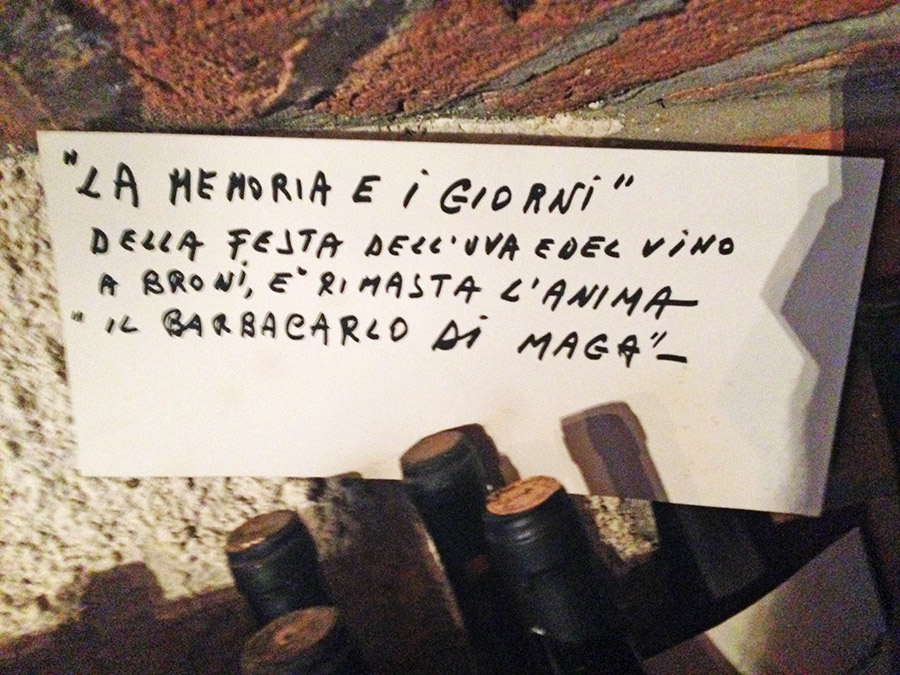 "LA MEMORIA E i GIORNi"
DELLA FESTA DELL'UVA E DEL ViNO
A BRONi, E' RIMASTA L'ANIMA
" IL BARBACARLO Di MAGA"-